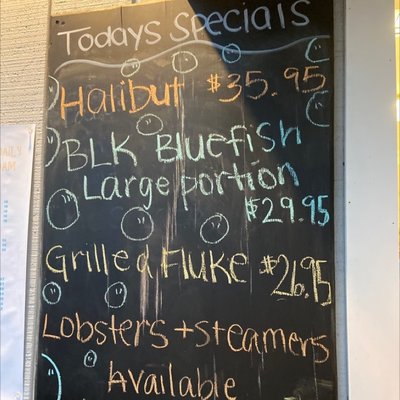 Todays Specials
Halibut $35.95
BLK Bluefish
Large portion
$29.95
Grilled Fluke $26.95
Lobsters + steamers
Available